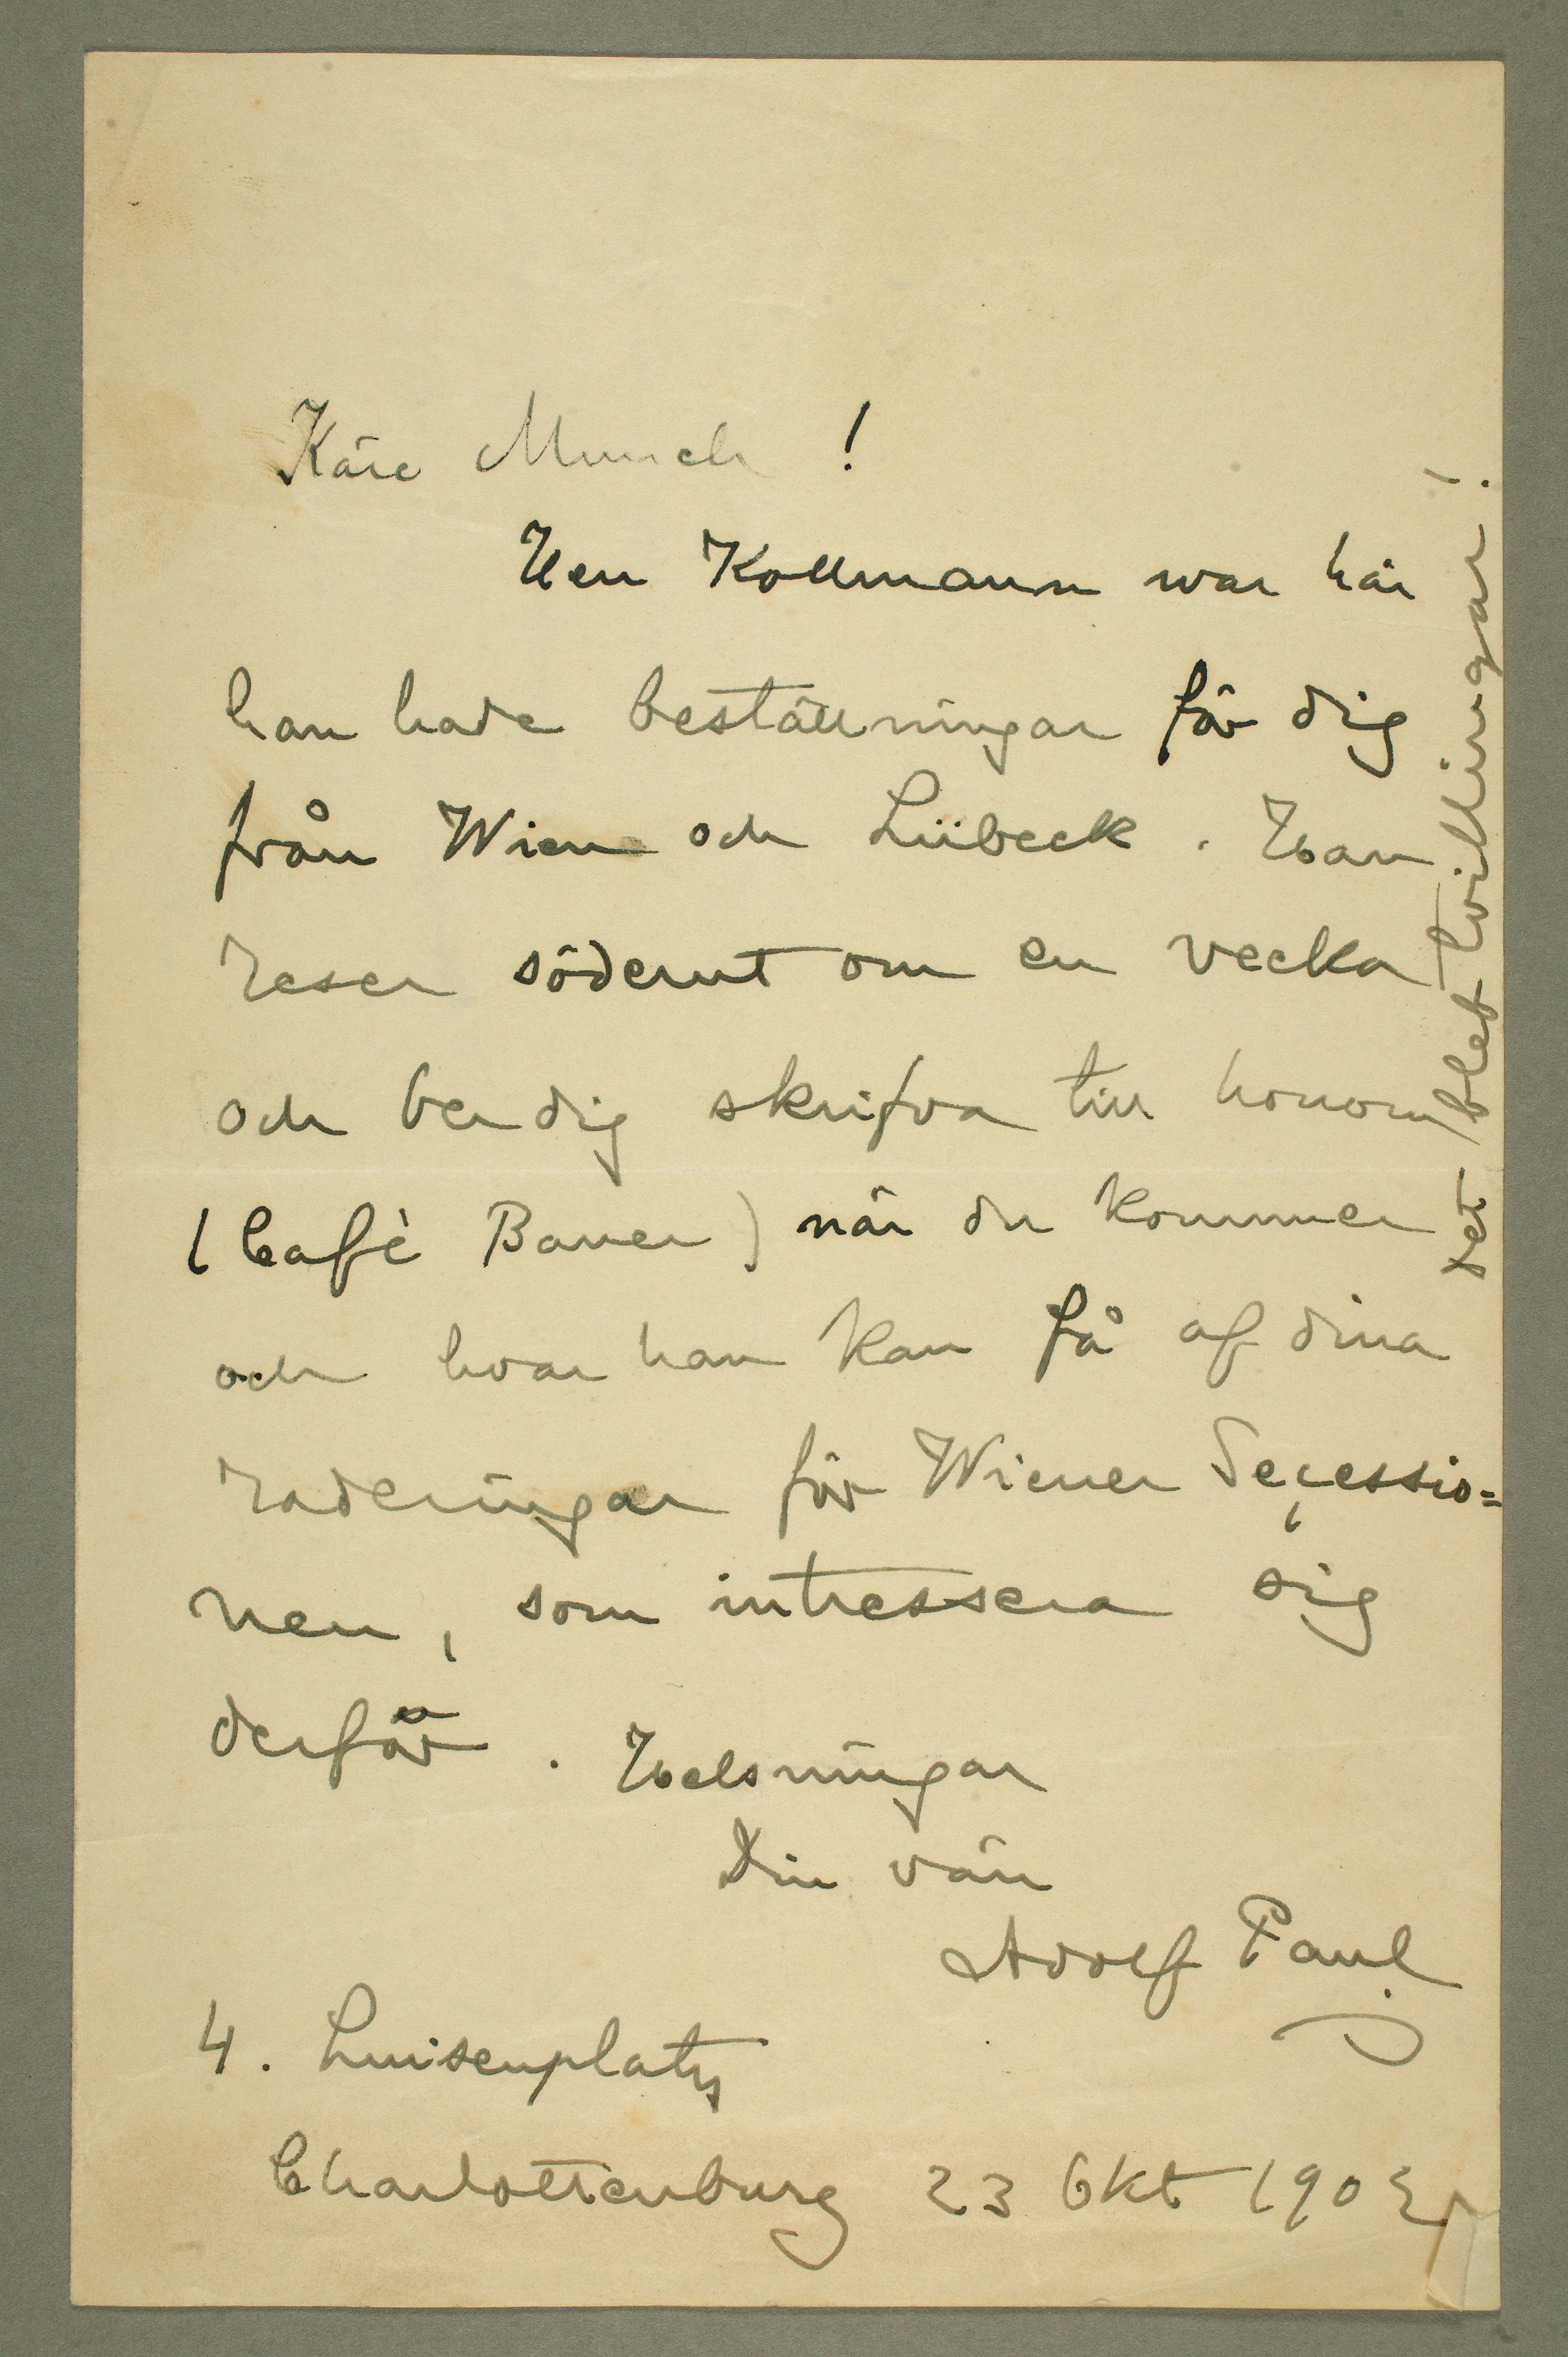 Käre Munch !
Herr Kollmann war här
han hade beställningar för dig
från Wien och Lübeck . Han
reser söderut om en vecka
och ber dig skrifva till honom
(Café Bauer) när du kommer
och hvar han kan få af dina
raderingar för Wiener Secessio=
nen, som intressera sig
derför . Helsningar
Din vän
Adolf Paul
4. Luisenplatz
Charlottenburg 23 Okt 1902
det blef tvillingar!